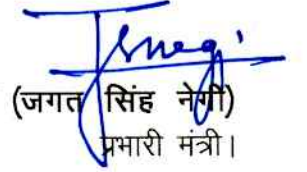 (जगत सिंह नेगी)
प्रभारी मंत्री।